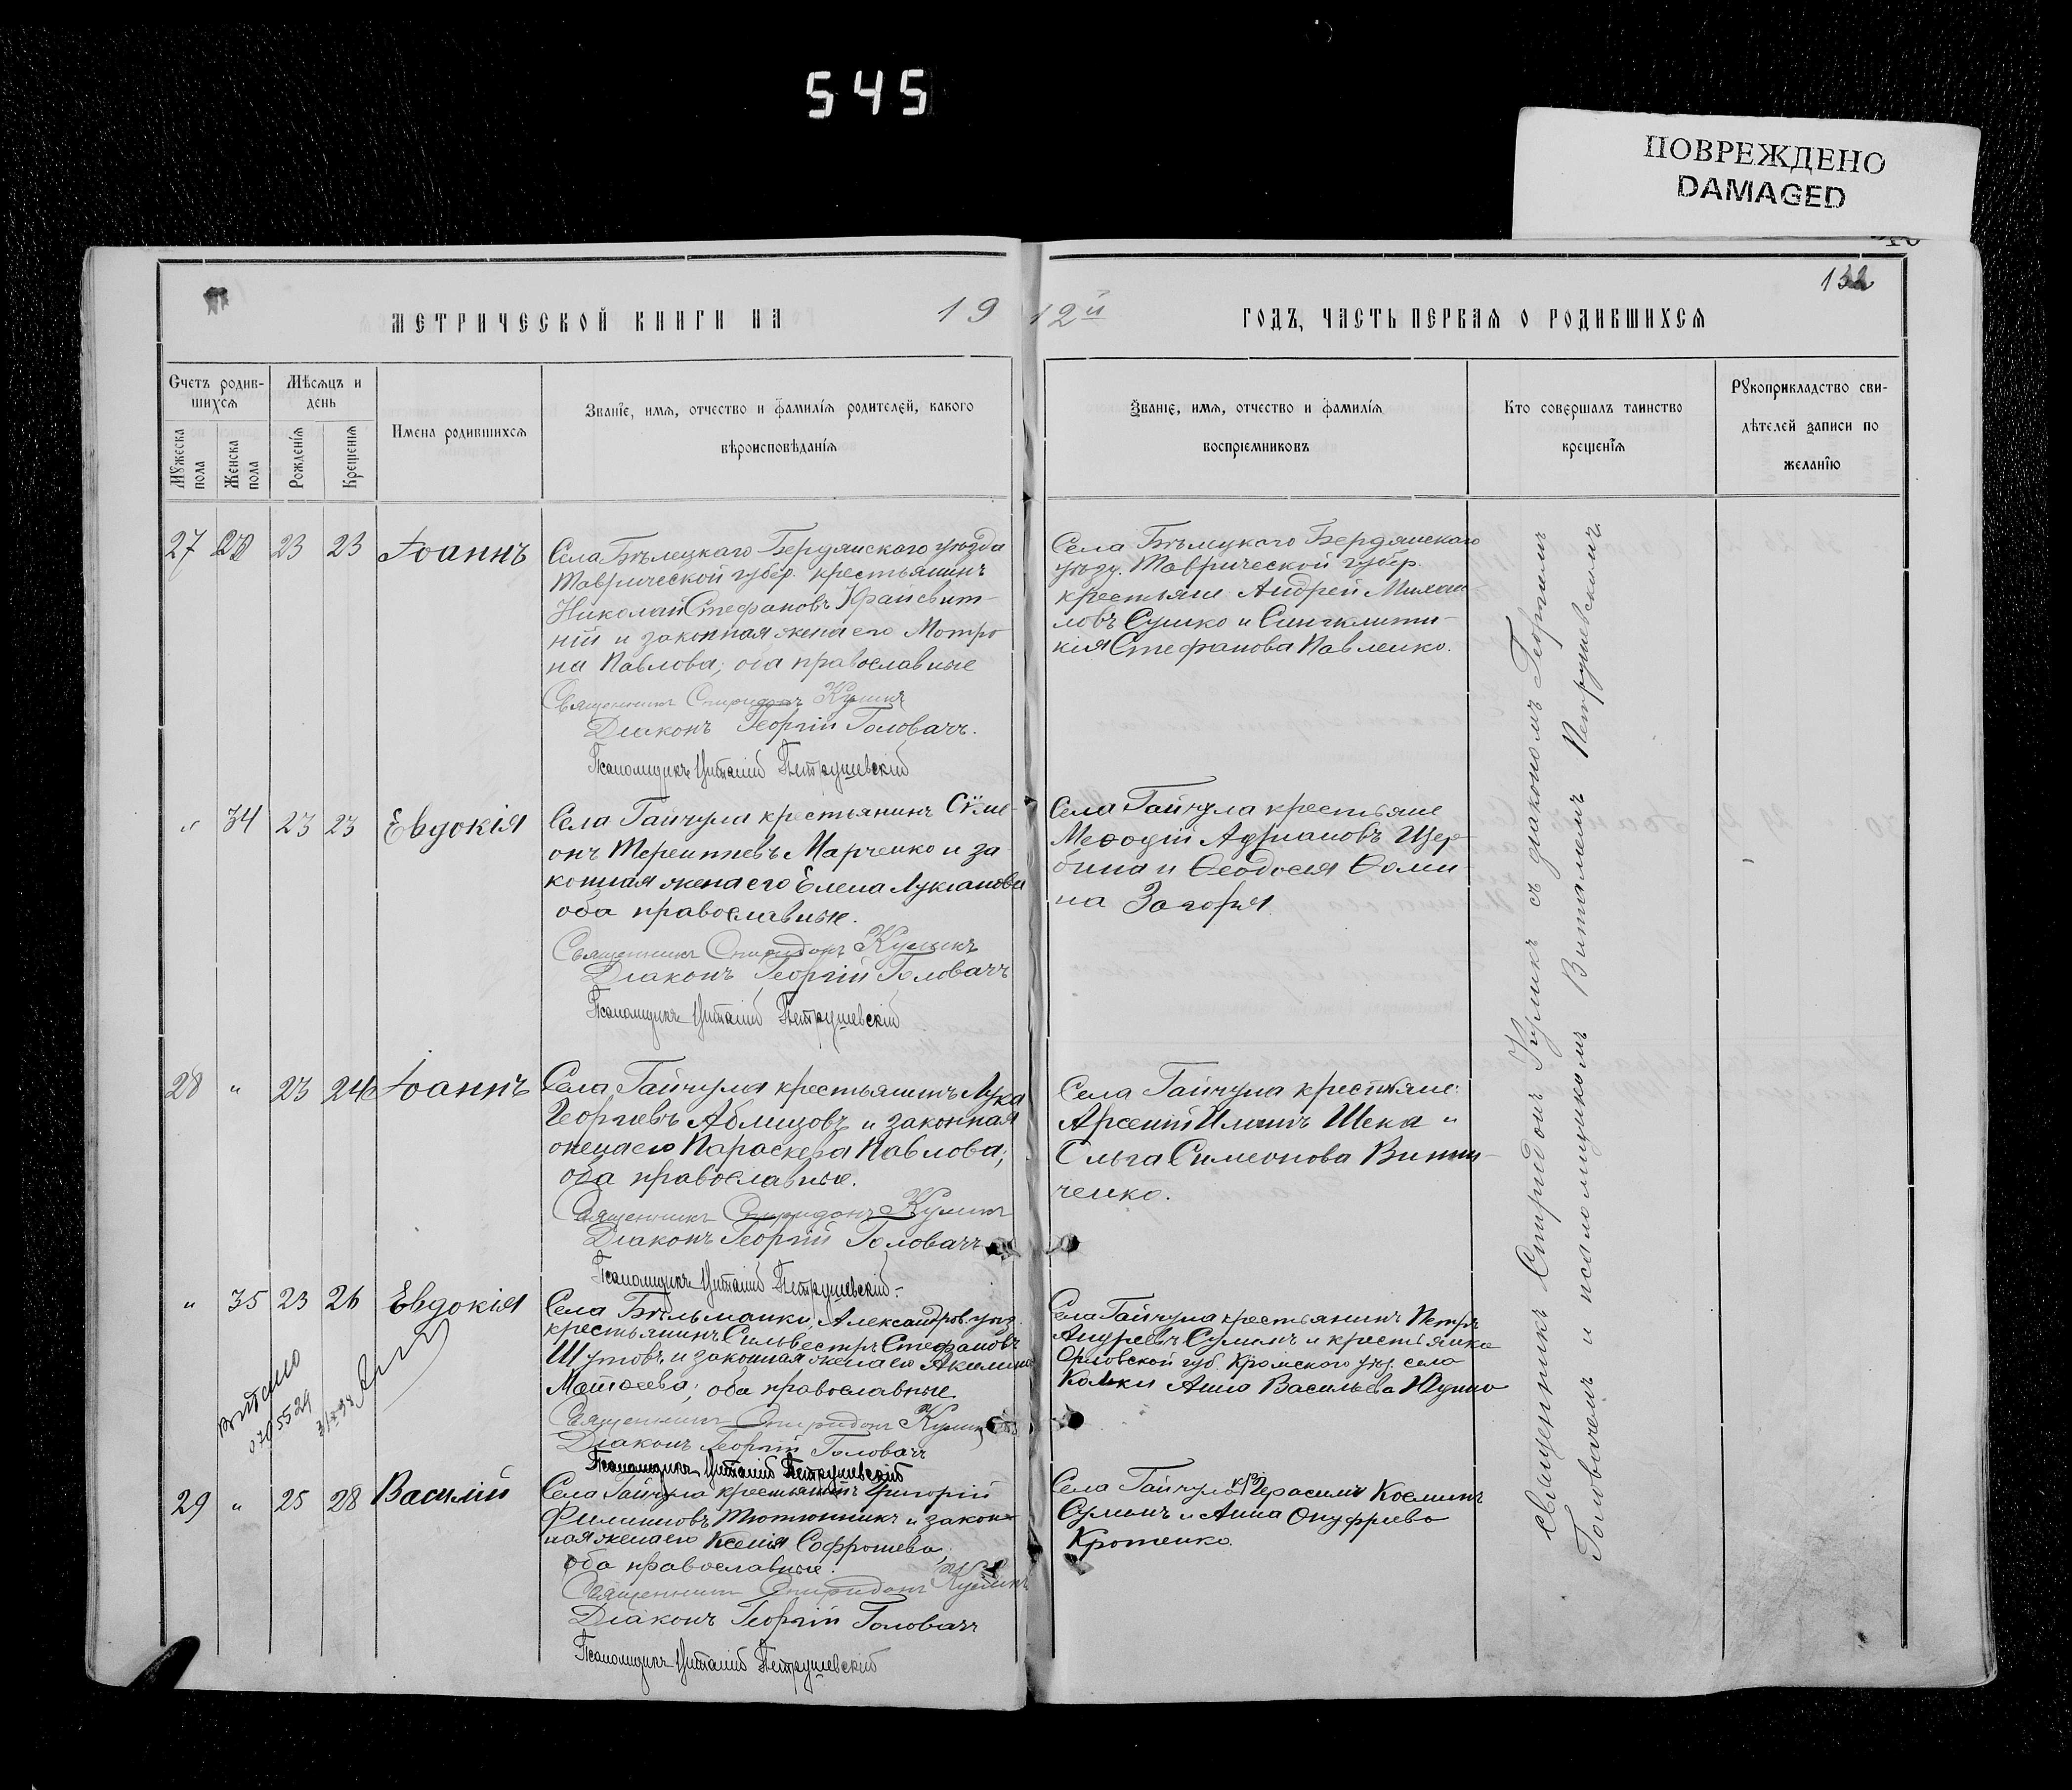 545
ПОВРЕЖДЕНО
DAMAGED
132
МЕТРИЧЕСКОЙ КНИГИ НА 19
12й ГОДЪ, ЧАСТЬ ПЕРВАЯ О РОДИВШИХСЯ
Счетъ родив-
шихся
Мѣсяцъ и
день
Мужеска
пола
Женска
пола
Рожденія
Крещенія
Имена родившихся
Званіе, имя, отчество и фамилія родителей, какого
вѣроисповѣданія
Званіе, имя, отчество и фамилія
воспріемниковъ
Кто совершалъ таинство
крещенія
Рукоприкладство сви-
дѣтелей записи по
желанію
27 23 23 Іоаннъ
Села Бѣлецкаго Бердянскаго уѣзда
Таврической губер. крестьянинъ
Николай Стефановъ
ній и законная жена его Матро
на Павлова; оба православные
Священникъ Спиридонъ Куликъ
Діаконъ Георгій Головачъ.
Псаломщикъ Виталій Петрушевскій
Села Бѣлецкаго Бердянскаго
уѣзд. Таврической губер.
крестьяне Андрей Михаи-
ловъ Сушко и Синклити-
кія Стефанова Павленко.
" 34 23 23 Евдокія
Села Гайчула крестьянинъ Симе-
онъ Терентіевъ Марченко и за
конная жена его Елена Лукіанова
оба православные.
Священникъ Спиридонъ Куликъ
Діаконъ Георгій Головачъ
Псаломщикъ Виталій Петрушевскій
Села Гайчула крестьяне
Меѳодій Адріановъ Щер-
бина и Ѳеодосія Ѳоми-
на Загоря.
28 " 23 24 Іоаннъ
Села Гайчула крестьянинъ Лука
Георгіевъ Аблицовъ и законная
жена его Параскева Павлова;
оба православные.
Священникъ Спиридонъ Куликъ
Діаконъ Георгій Головачъ
Псаломщикъ Виталій Петрушевскій
Села Гайчула крестьяне:
Арсеній Ильинъ Шека и
Ольга Симеонова Винни-
ченко.
" 35 23 26 Евдокія
Села Бѣльманки, Александров. уѣз.
крестьянинъ Сильвестръ Стефановъ
Шутовъ и законная жена его Акилина
Матѳеева; оба православные
Священникъ Спиридонъ Куликъ
Діаконъ Георгій Головачъ
Псаломщикъ Виталій Петрушевскій
Села Гайчула крестьянинъ Петръ
Андреевъ Сулимъ и крестьянка
Орловской губ. Кромского уѣз. села
Анна Васильева
29 " 25 28 Василій
Села Гайчула крестьянинъ Григорій
Филипповъ Тютюнникъ и закон-
ная жена его Ксенія Софроніева
оба православные.
Священникъ Спиридонъ Куликъ
Діаконъ Георгій Головачъ
Псаломщикъ Виталій Петрушевскій
Села Гайчула кр. Герасимъ Косминъ
Сулимъ и Анна Онуфріева
Кротенко.
Священникъ Спиридонъ Куликъ съ діакономъ Георгіемъ
Головачемъ и псаломщикомъ Виталіемъ Петрушевскимъ